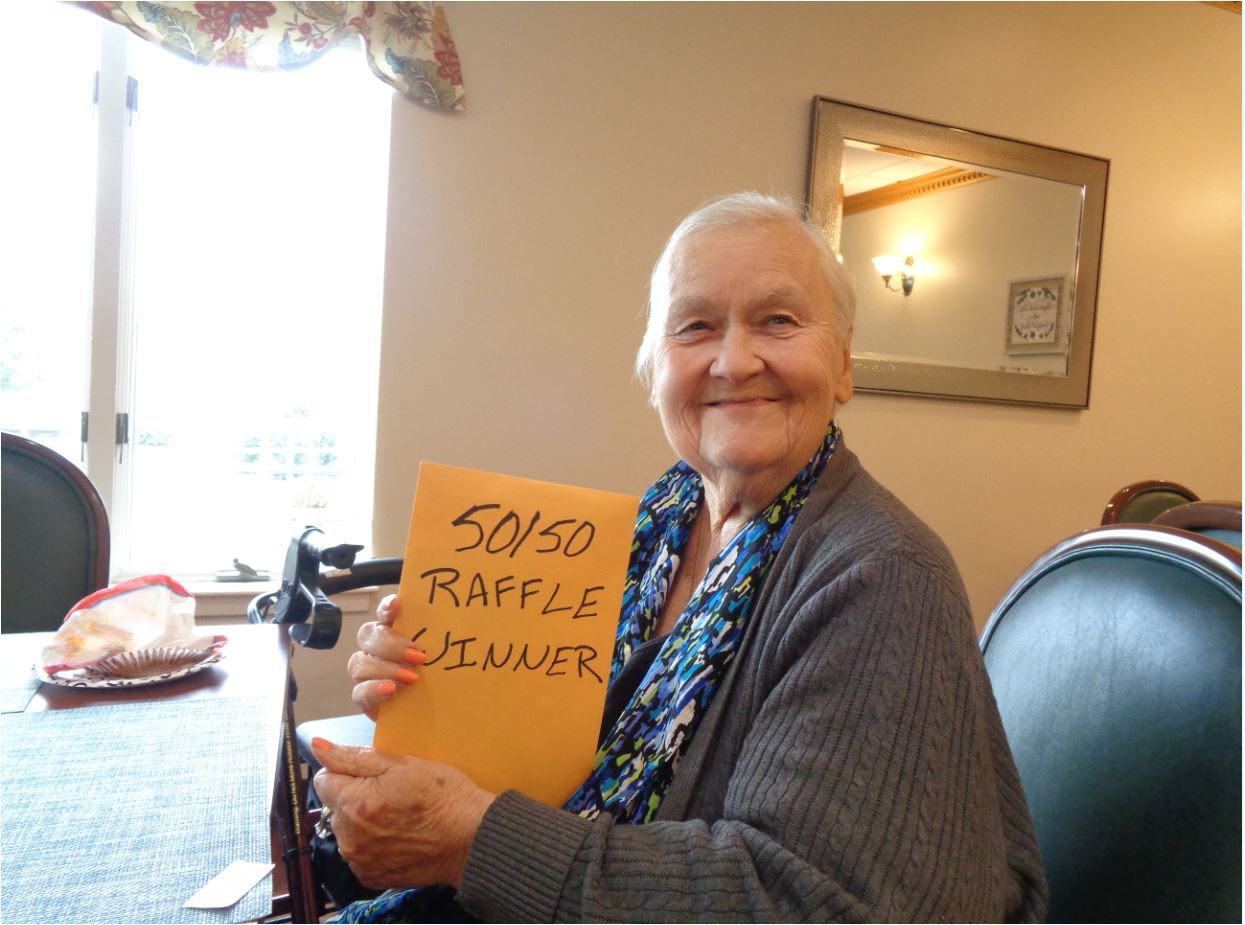 50/50
RAFFLE
WINNER